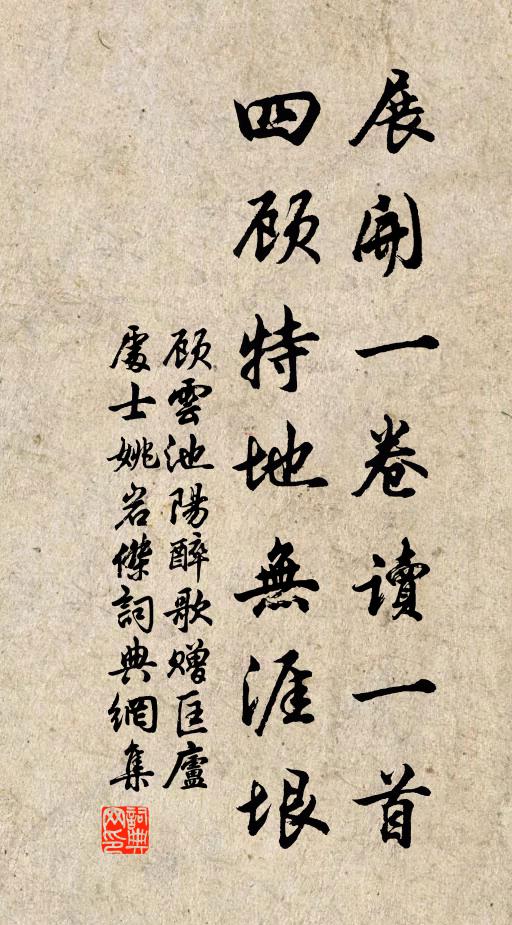 展開一卷讀一首
四顾特地無涯垠
顾雲池陽醉歌赠匡廬
處士姚岩傑詞典網集
詞典網印